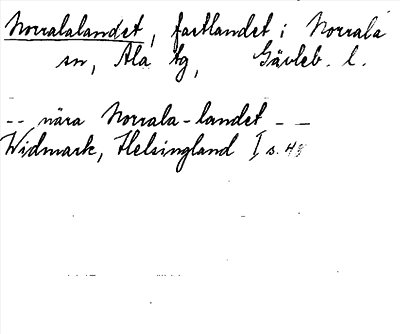 Norralalandet, fastlandet i Norrala
sn, Ala tg, Gävleb. l.
-- nära Norrala-landet --
Widmark, Helsingland I s. 48